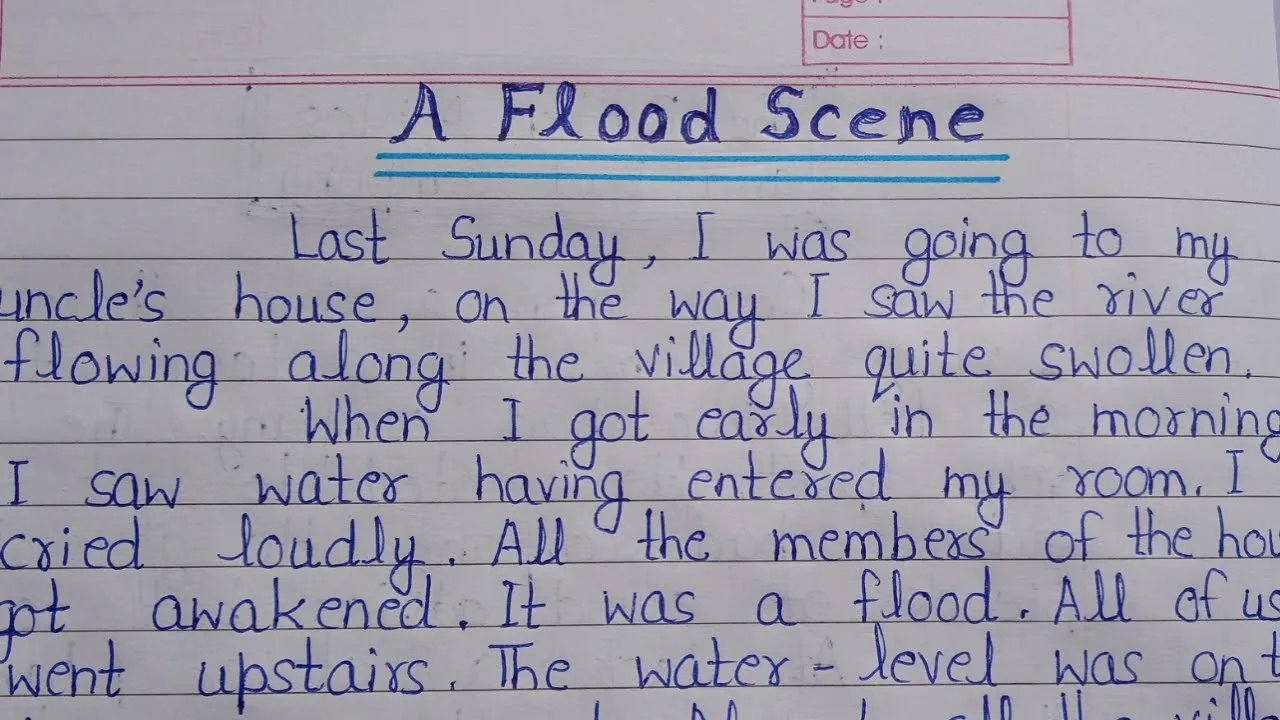 Date :
A Flood Scene
Last Sunday, I was going to my
uncle's house, on the way I saw the river
flowing along the village quite swollen.
When I got early in the morning
I saw water having entered my room. I
cried loudly. All the members of the hou
got awakened. It was a flood. All of us
went upstairs. The water-level was on t